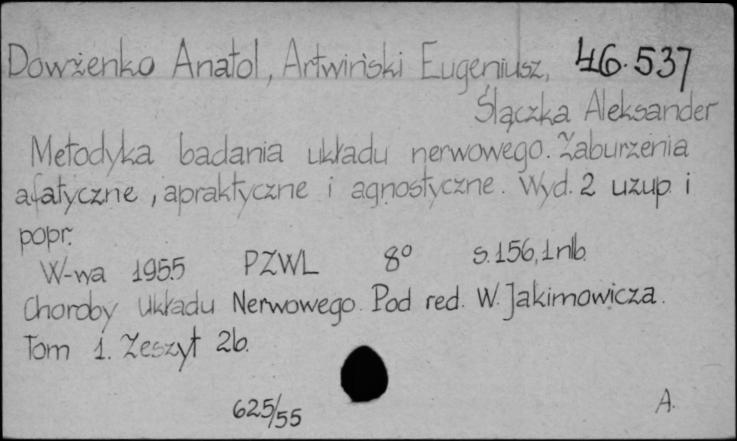 Dowżenko Anatol, Artwiński Eugeniusz, 46.537
Ślączka Aleksander
Metodyka badania układu nerwowego. Zaburzenia
afatyczne, apraktyczne i agnostyczne. Wyd. 2 uzup i
popr.
W-wa 1955 PZWL 8° s. 156, 1 nlb.
Choroby Układu Nerwowego. Pod red. W. Jakimowicza.
Tom 1. Zeszyt 2b.
625/55 A.